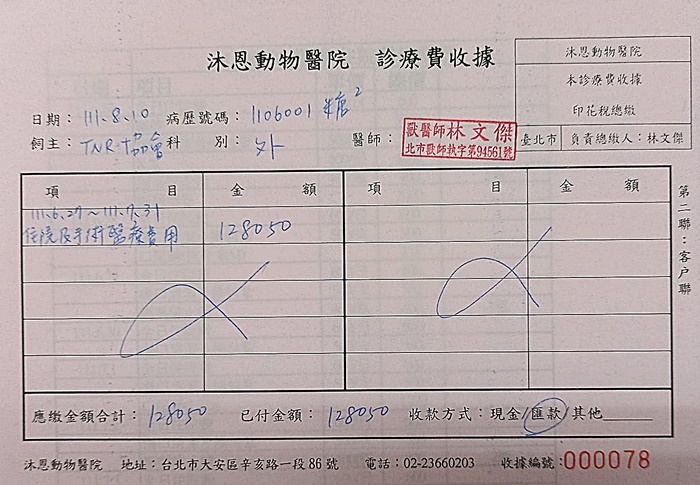 沐恩動物醫院 診療費收據
沐恩動物醫院
本診療費收據
印花稅總繳
臺北市 負責總繳人：林文傑
日期：111.8.10 病歷號碼：1106001 糖²
飼主：TNR協會 科別：外 醫師：
獸醫師林文傑
北市獸師執字第94561號
項目 金額 項目 金額
111.6.27～111.7.31
住院及手術醫療費用 128050
第二聯：客戶聯
應繳金額合計：128050 已付金額：128050 收款方式：現金/匯款/其他
沐恩動物醫院 地址：台北市大安區辛亥路一段86號 電話：02-23660203 收據編號：000078